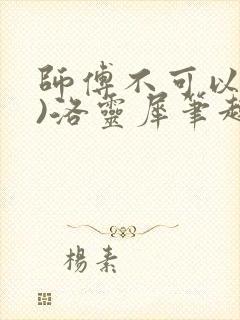 師傅不可以
)洛靈犀筆趣
楊素